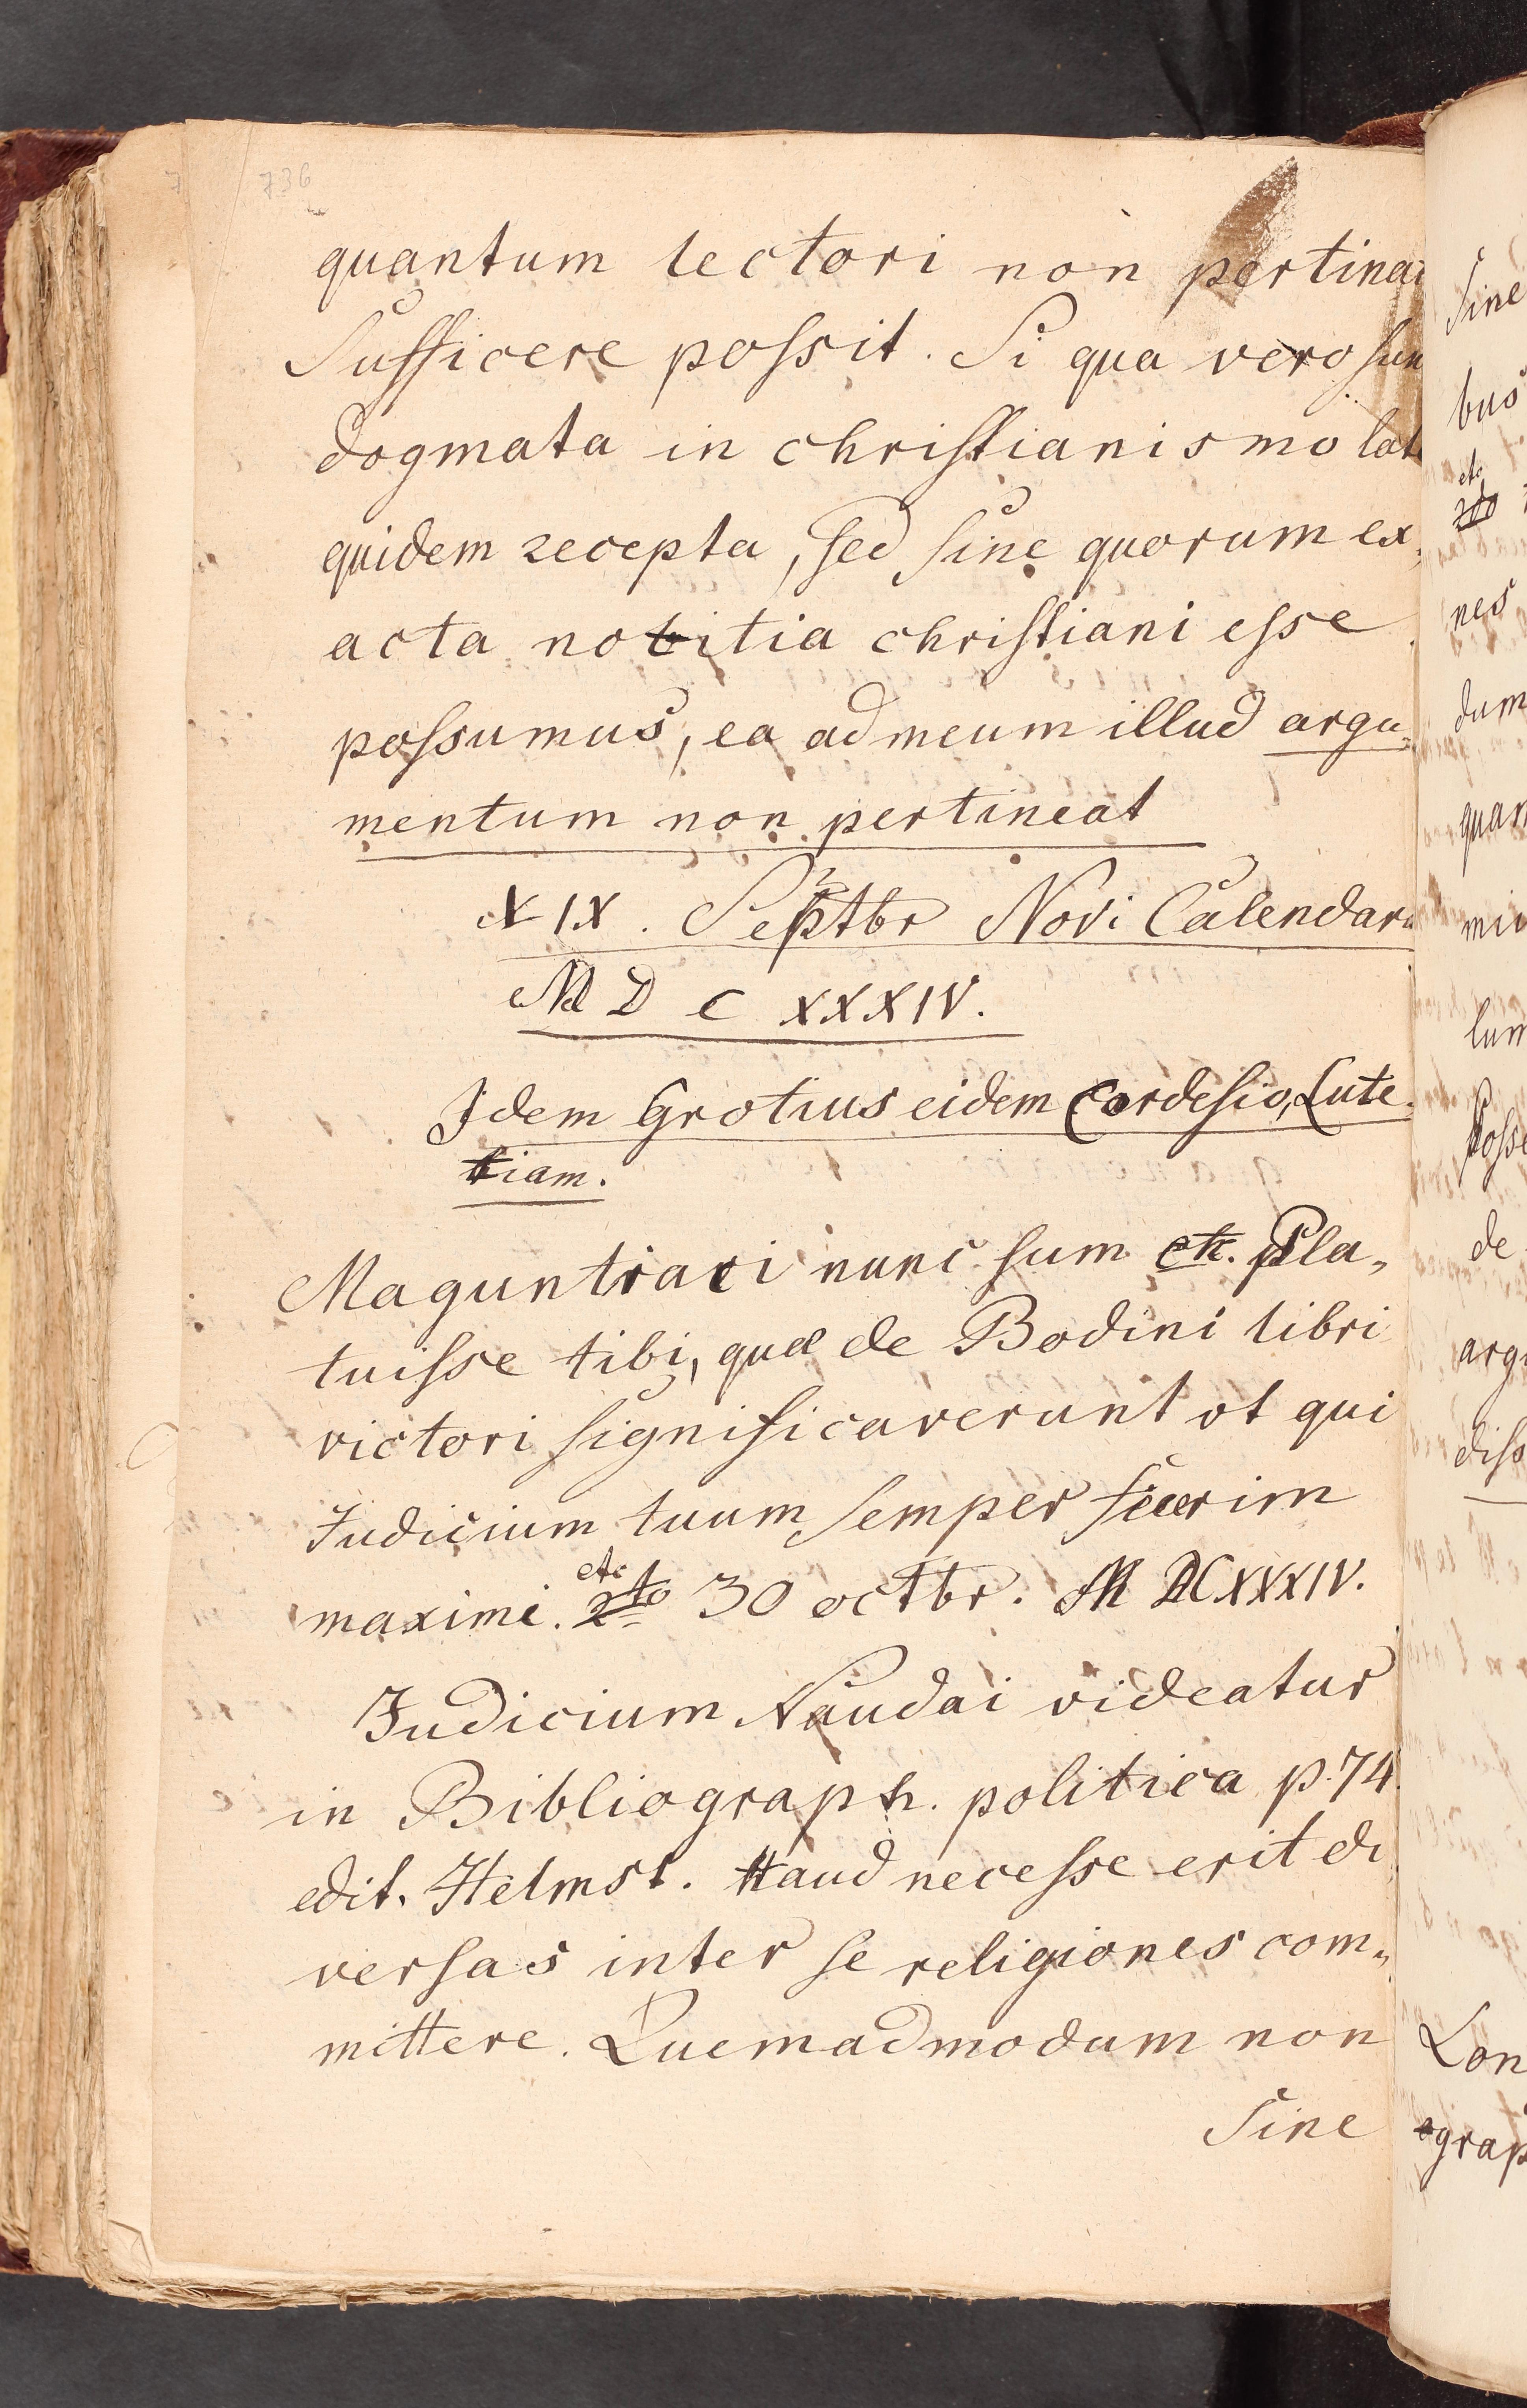 736
quantum lectori non pertinaci
sufficere possit. Si qua vero sun
dogmata in christianismo late
quidem recepta, sed sine quorum ex,
acta notitia christiani esse
possumus, ea ad meum illud argu,
mentum non pertineat
XIX. Septbr Novi Calendari
M D C XXXIV.
Idem Grotius eidem Cordesio, Lute,
tiam.
Maguntiaci nunc sum etc. Pla,
tuisse tibi, quæ de Bodini libri
victori significaverunt ot qui
Judicium tuum semper fecerim
maximi. etc 30 octbr. M DCXXXIV.
Judicium Naudai videatur
in Bibliograph. politica p. 74
edit. Helmst. Haud necesse erit di
versas inter se religiones com,
mittere. Quemadmodum non
sine
sine
bus
etc
nes
dum
quam
mi
lum
posse
de
arg
diss
Lon
grap